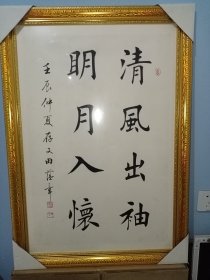 清風出袖
明月入懷
壬辰仲夏存文田蘊章